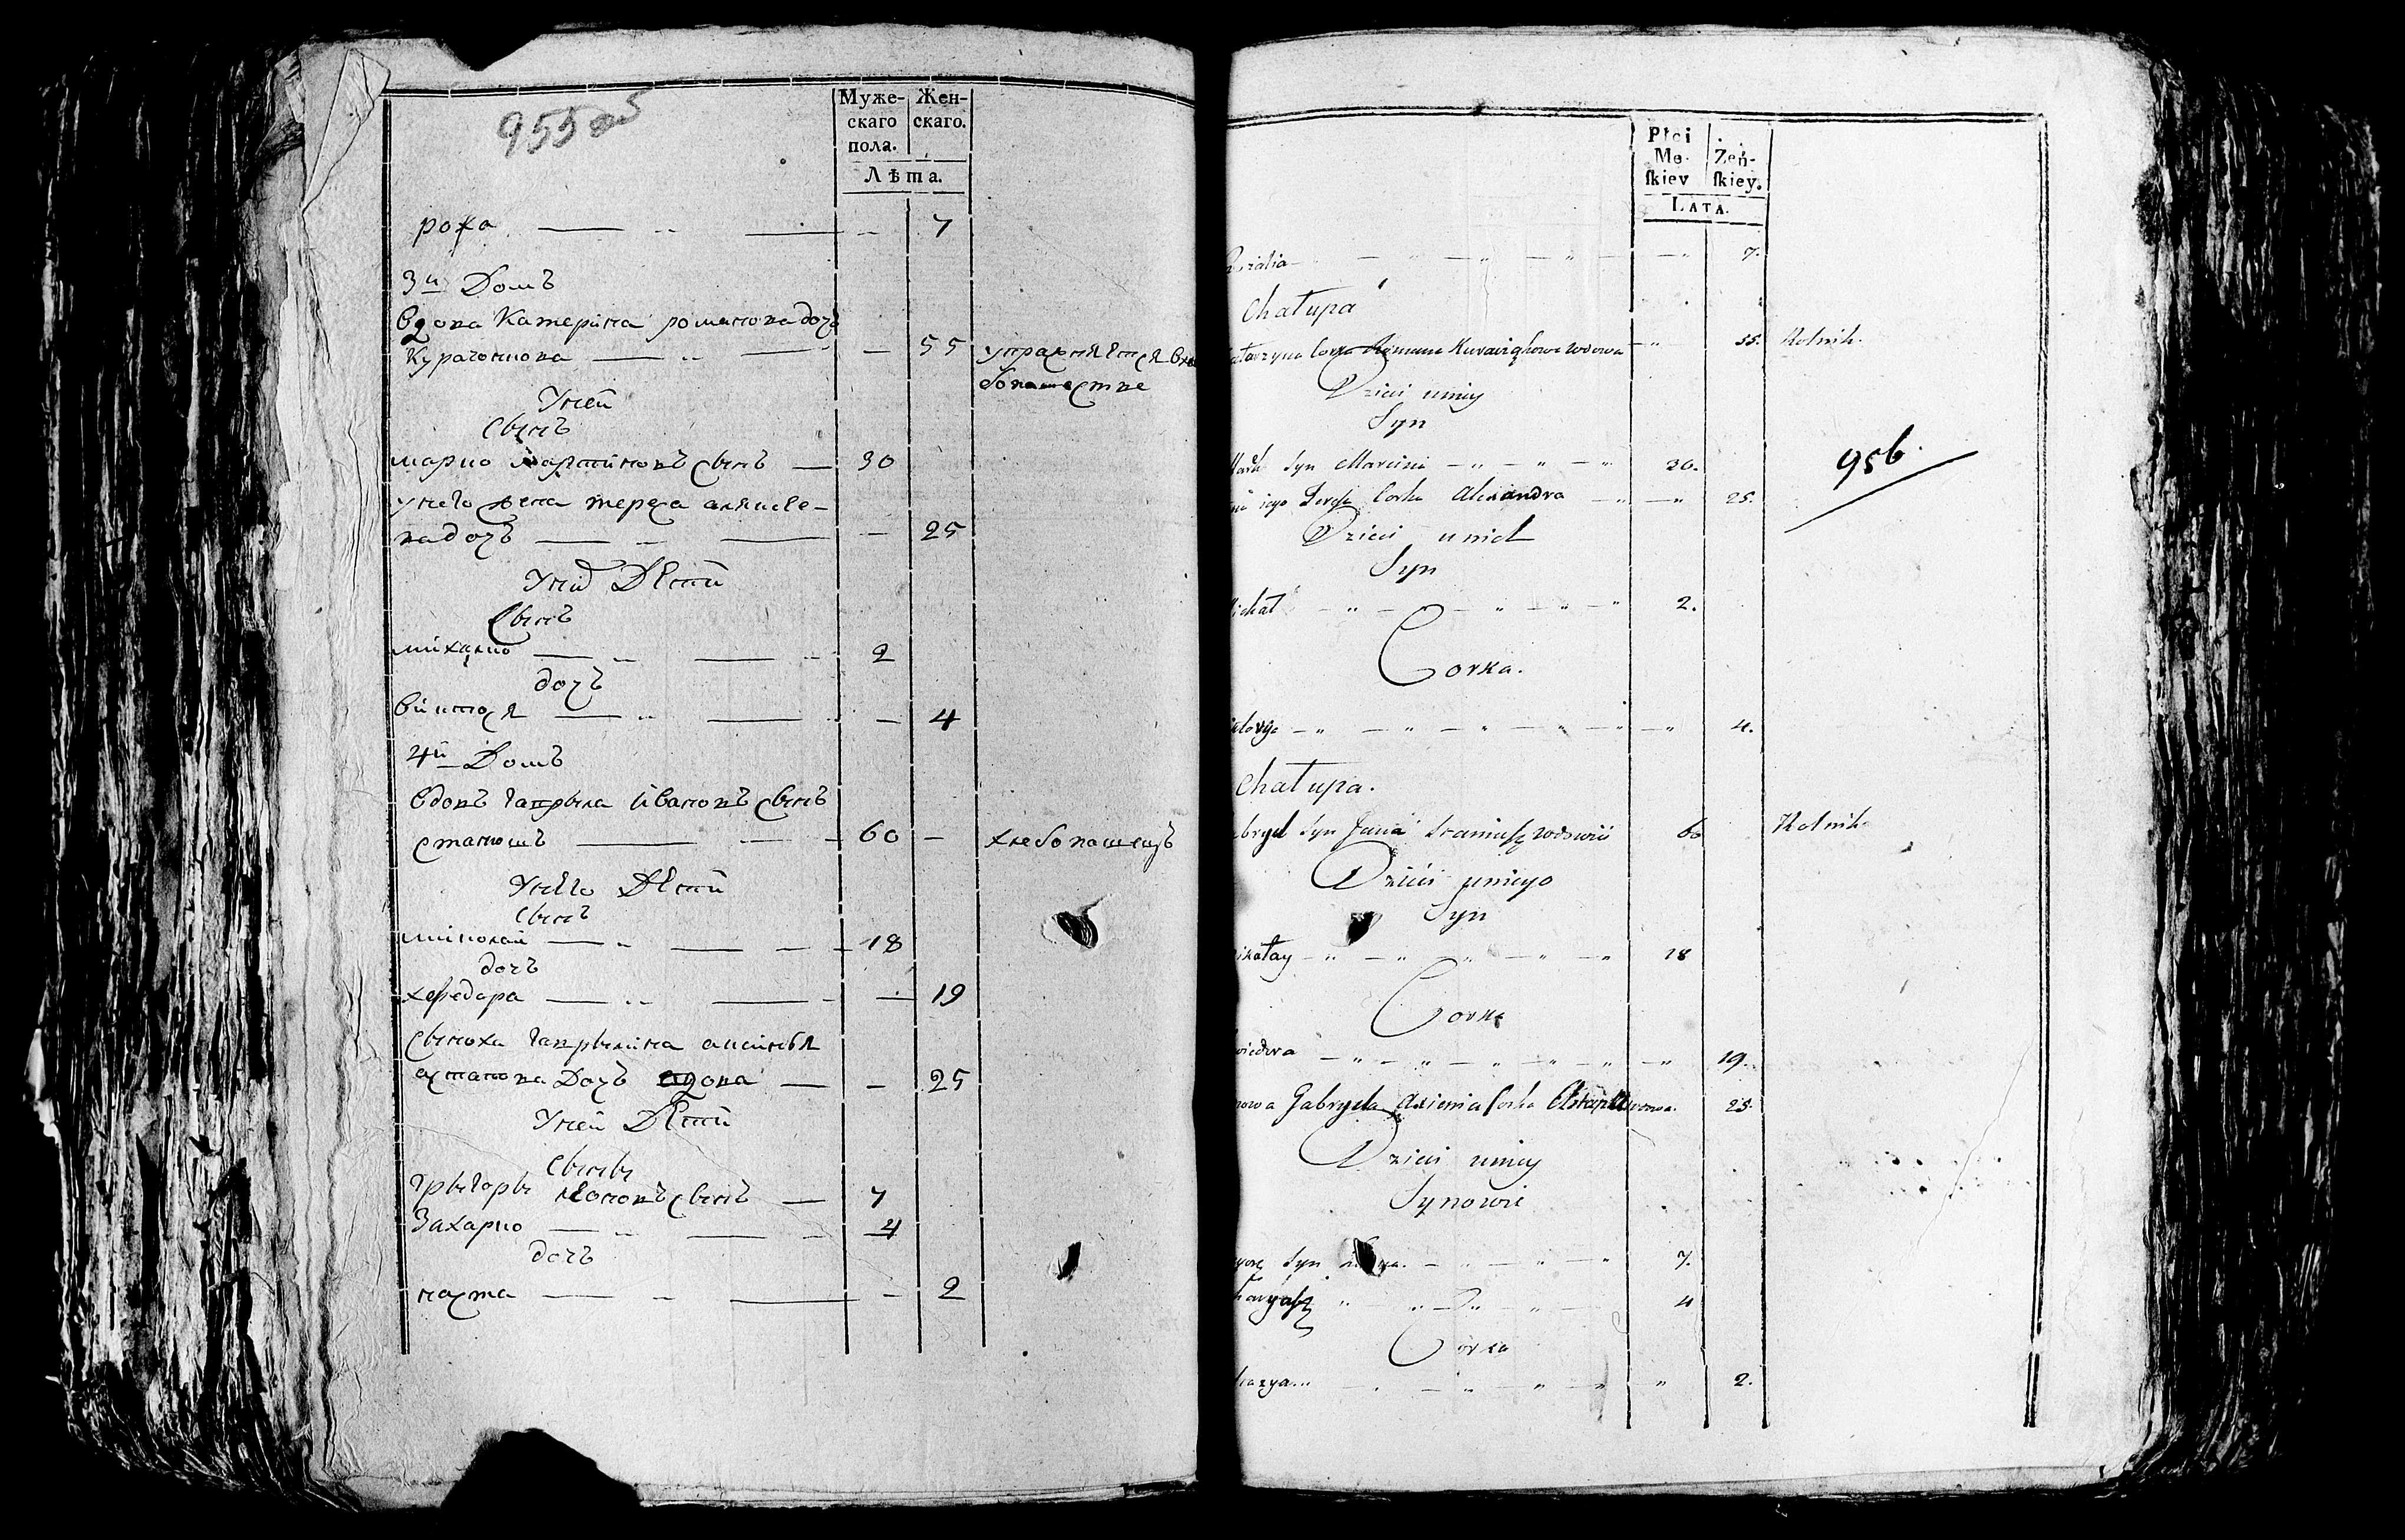 955 об
Муже-
скаго
пола.
Жен-
скаго.
Лѣта.
рожа — „ — — „ 7
3й Домъ
Вдова Катерина романова дочъ
Курагонова — „ — — 55 упражняется в хле
бопашестве
У ней
Сынъ
марко мартиновъ сынъ — 30
у него жена тереса
ва дочъ — „ — — 25
У нид Дѣти
Сынъ
михалко — „ — „ 2
дочъ
Викторя — „ — — 4
4й Домъ
Вдовъ гаврыла Ивановъ сынъ
станошъ — — 60 — хлебопашецъ
У него Дѣти
Сынъ
миколай — „ — — 18
дочъ
хведора — „ — — 19
Сыноха гаврылина аксинья
астапова Дочъ вдова — — 25
У ней Дѣти
Сыны
Грыгоры леоновъ сынъ — 7
Захарко — „ — — 4
дочъ
наста — „ — — 2
Płci
Me-
skiey
Żeń-
skiey.
LATA.
Rozalia — „ — „ — „ — „ 7.
Chałupa
Katarzyna Corka Romana wdowa — „ 55. Rolnik.
Dzieci u niey
Syn
Mark Syn Marcina — „ — „ — „ 30.
956.
iego Corka Alexandra — „ — „ 25.
Dzieci u nich
Syn
Michał — „ — „ — „ — „ 2.
Corka.
— „ — „ — „ — „ 4.
Chałupa.
Gabryel Syn Jana wdowiec 60 Rolnik
Dzieci u niego
Syn
Mikołay — „ — „ — „ — „ 18
Corka
— „ — „ — „ — „ 19.
nowa Gabryela Axienia Corka Astapa wdowa. 25.
Dzieci u niey
Synowie
Syn — „ — „ 7.
„ — „ — „ 4
Corka
— „ — „ — „ 2.